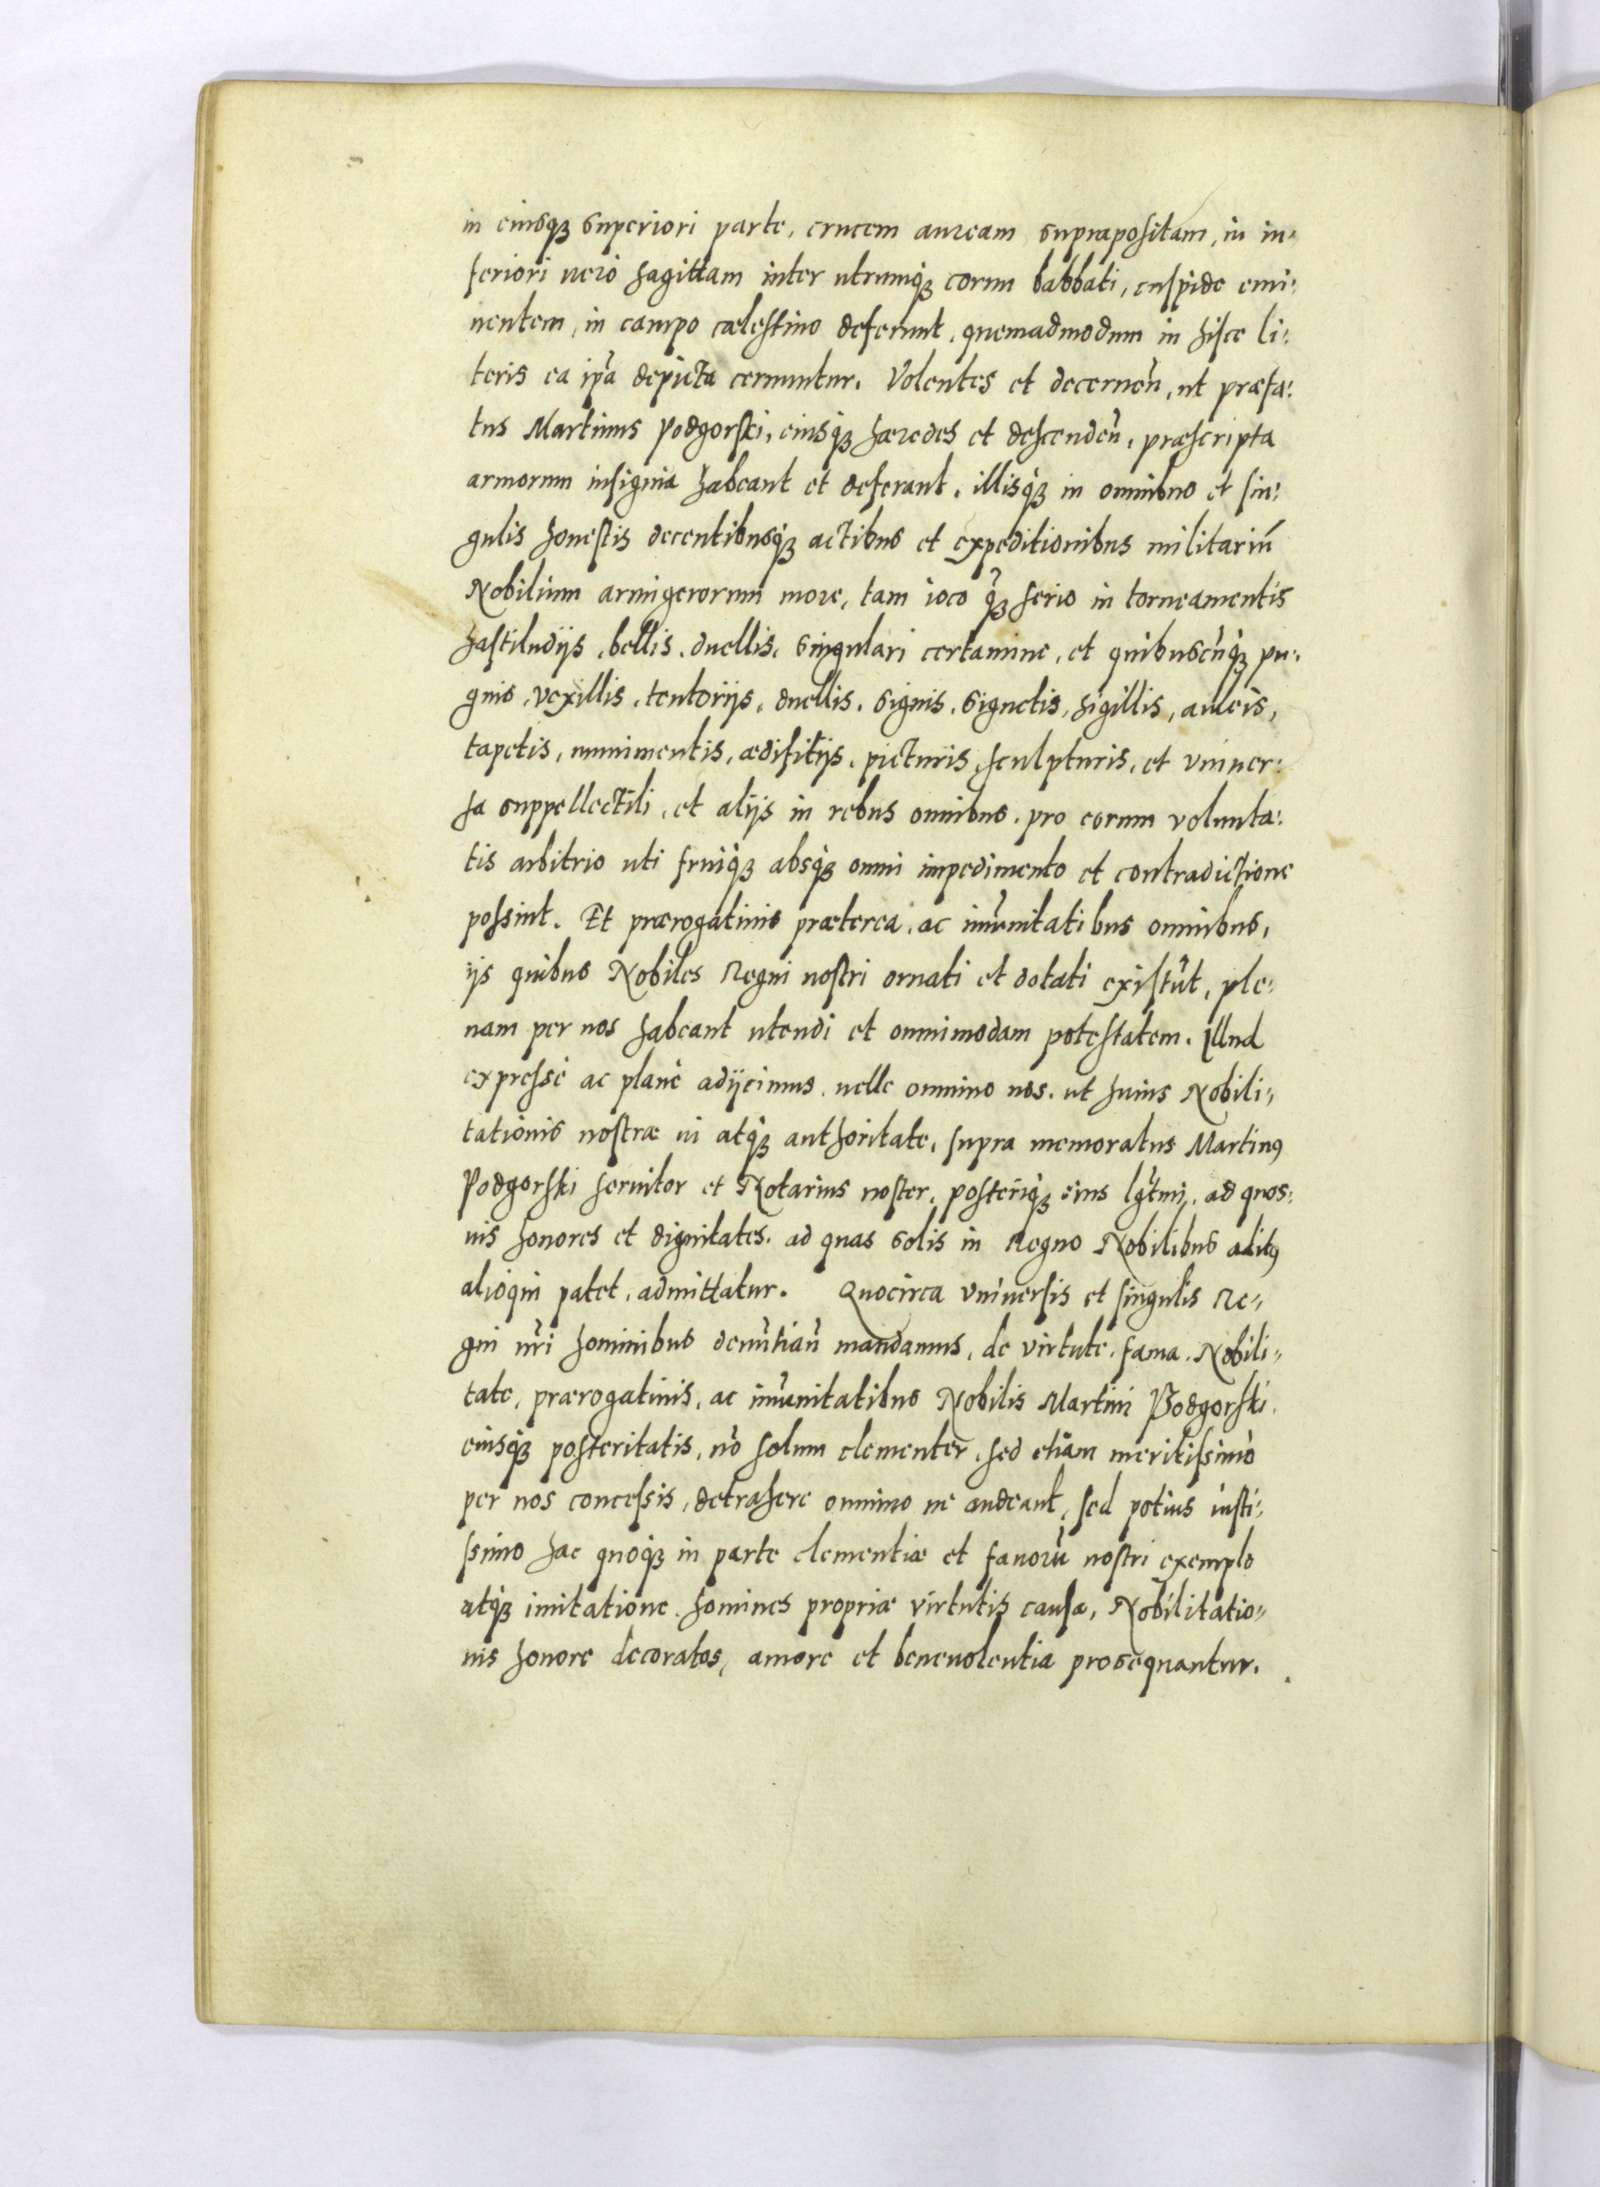 in eiusq3 superiori parte, crucem auream suprapositam, in in-
feriori uero sagittam inter utrumq3 cornu babbati, cuspide emi-
nentem, in campo cælestino deferunt, quemadmodum in hisce li-
teris ea ip̃a depicta cernuntur. Volentes et decernen̄, ut præfa-
tus Martinus Podgorski, eiusq3 hæredes et descenden̄, præscripta
armorum insignia habeant et deferant, illisq3 in omnibus et sin-
gulis honestis decentibusq3 actibus et expeditionibus militariū
Nobilium armigerorum more, tam ioco q̃3 serio in torneamentis
hastiludijs, bellis, duellis, singulari certamine, et quibuscūq3 pu-
gnis, vexillis, tentorijs, duellis, signis, signetis, sigillis, auleis,
tapetis, munimentis, ædifitijs, picturis, sculpturis, et vniuer-
sa suppellectili, et alijs in rebus omnibus, pro eorum volunta-
tis arbitrio uti fruiq3 absq3 omni impedimento et contradictione
possint. Et prærogatiuis præterea, ac im̄unitatibus omnibus,
ijs quibus Nobiles Regni nostri ornati et dotati existūt, ple-
nam per nos habeant utendi et omnimodam potestatem. Illud
expressè ac planè adijcimus, uelle omnino nos, ut huius Nobili-
tationis nostræ ui atq3 authoritate, supra memoratus Martin9
Podgorski seruitor et Notarius noster, posteriq3 eius lg̃tmi, ad quos-
uis honores et dignitates, ad quas solis in Regno Nobilibus adit9
alioqui patet, admittatur. Quocirca vniuersis et singulis Re-
gni nr̃i hominibus denūtian̄ mandamus, de virtute, fama, Nobili-
tate, prærogatiuis, ac im̄unitatibus Nobilis Martini Podgorski,
eiusq3 posteritatis, nō solum clementer, sed etiam meritissimò
per nos concessis, detrahere omnino ne audeant, sed potius iusti-
ssimo hac quoq3 in parte clementiæ et fauorū nostri exemplo
atq3 imitatione, homines propriæ virtutis causa, Nobilitatio-
nis honore decoratos, amore et beneuolentia prosequantur.